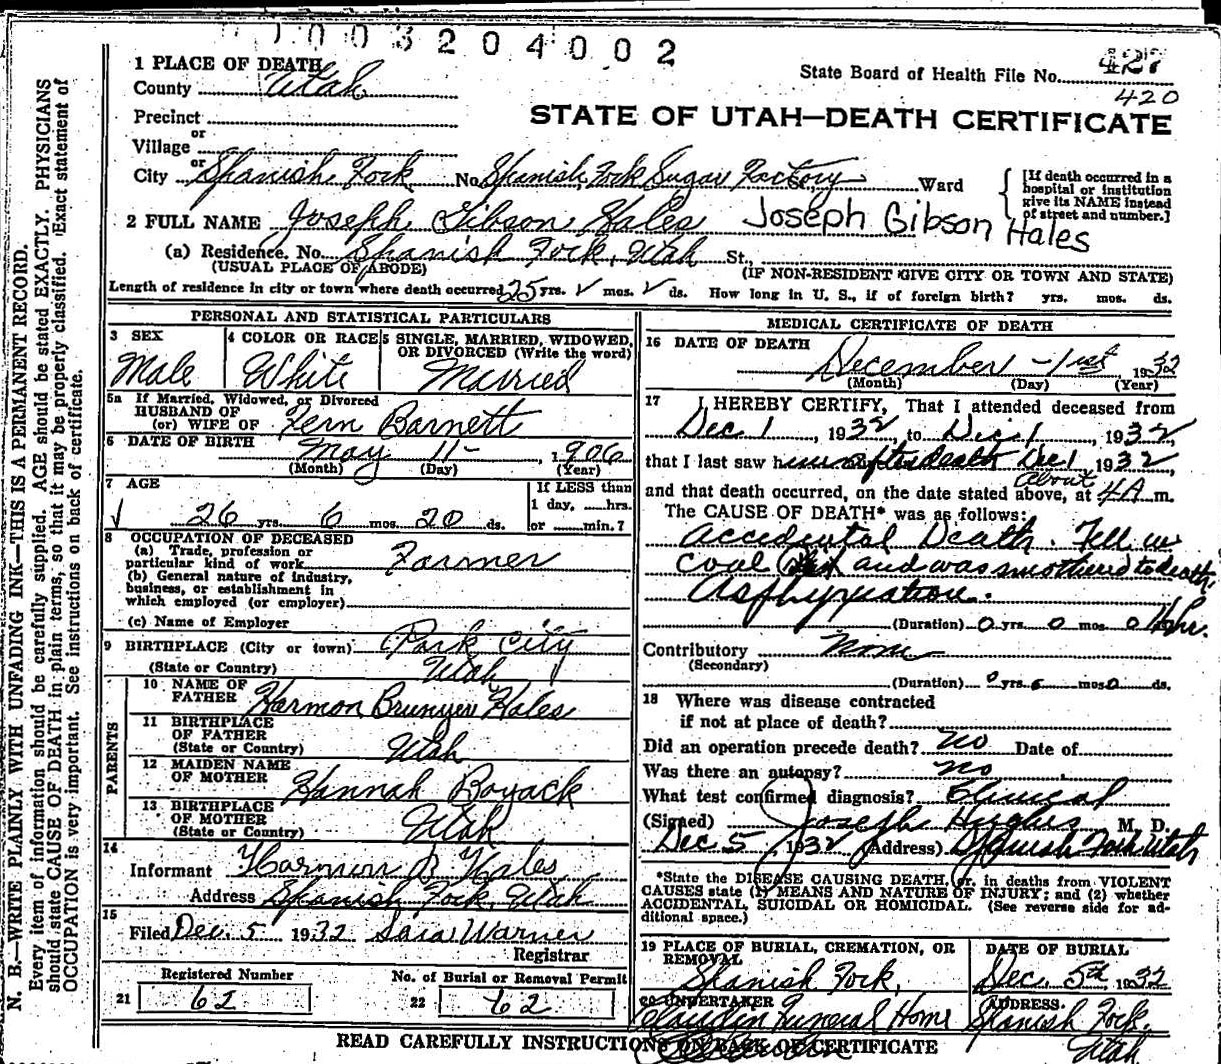 1003204002
1 PLACE OF DEATH
County Utah
State Board of Health File No. 427
420
STATE OF UTAH—DEATH CERTIFICATE
Precinct
or
Village
or
City Spanish Fork No. Spanish Fork Sugar Factory St., Ward
[If death occurred in a hospital or institution give its NAME instead of street and number.]
2 FULL NAME Joseph Gibson Hales Joseph Gibson Hales
(a) Residence. No. Spanish Fork, Utah St.,
(USUAL PLACE OF ABODE) (IF NON-RESIDENT GIVE CITY OR TOWN AND STATE)
Length of residence in city or town where death occurred 25 yrs. mos. ds. How long in U. S., if of foreign birth? yrs. mos. ds.
PERSONAL AND STATISTICAL PARTICULARS
3 SEX
Male
4 COLOR OR RACE
White
5 SINGLE, MARRIED, WIDOWED, OR DIVORCED (Write the word)
Married
5a If Married, Widowed, or Divorced
HUSBAND OF
(or) WIFE OF Fern Barnett
6 DATE OF BIRTH May 11- 1906
(Month) (Day) (Year)
7 AGE
26 yrs. 6 mos. 20 ds.
If LESS than
1 day, hrs.
or min.?
8 OCCUPATION OF DECEASED
(a) Trade, profession or
particular kind of work Farmer
(b) General nature of industry,
business, or establishment in
which employed (or employer)
(c) Name of Employer
9 BIRTHPLACE (City or town) Park City
(State or Country) Utah
PARENTS
10 NAME OF
FATHER Harmon Brunyer Hales
11 BIRTHPLACE
OF FATHER
(State or Country) Utah
12 MAIDEN NAME
OF MOTHER Hannah Boyack
13 BIRTHPLACE
OF MOTHER
(State or Country) Utah
14
Informant Harmon B Hales
Address Spanish Fork, Utah
15
Filed Dec. 5 1932 Sara Warner
Registrar
Registered Number
21 62
No. of Burial or Removal Permit
22 62
MEDICAL CERTIFICATE OF DEATH
16 DATE OF DEATH
December - 1st 1932
(Month) (Day) (Year)
17 I HEREBY CERTIFY, That I attended deceased from
Dec 1, 1932, to Dec 1, 1932,
that I last saw him after death Dec 1 1932,
and that death occurred, on the date stated above, at About 4 A m.
The CAUSE OF DEATH* was as follows:
Accidental Death. Fell in
Coal and was smothered to death.
Asphyxiation.
(Duration) 0 yrs. 0 mos. 0 hr.
Contributory None
(Secondary)
(Duration) 0 yrs. mos. 0 ds.
18 Where was disease contracted
if not at place of death?
Did an operation precede death? No Date of
Was there an autopsy? No
What test confirmed diagnosis? Clinical
(Signed) Joseph Hughes M. D.
Dec 5, 1932 (Address) Spanish Fork Utah
*State the DISEASE CAUSING DEATH, or, in deaths from VIOLENT
CAUSES state (1) MEANS AND NATURE OF INJURY; and (2) whether
ACCIDENTAL, SUICIDAL OR HOMICIDAL. (See reverse side for ad-
ditional space.)
19 PLACE OF BURIAL, CREMATION, OR
REMOVAL
Spanish Fork,
DATE OF BURIAL
Dec. 5th, 1932
20 UNDERTAKER
Claudin Funeral Home
ADDRESS.
Spanish Fork,
Utah
READ CAREFULLY INSTRUCTIONS ON BACK OF CERTIFICATE
N. B.—WRITE PLAINLY WITH UNFADING INK—THIS IS A PERMANENT RECORD.
Every item of information should be carefully supplied. AGE should be stated EXACTLY. PHYSICIANS
should state CAUSE OF DEATH in plain terms, so that it may be properly classified. Exact statement of
OCCUPATION is very important. See instructions on back of certificate.